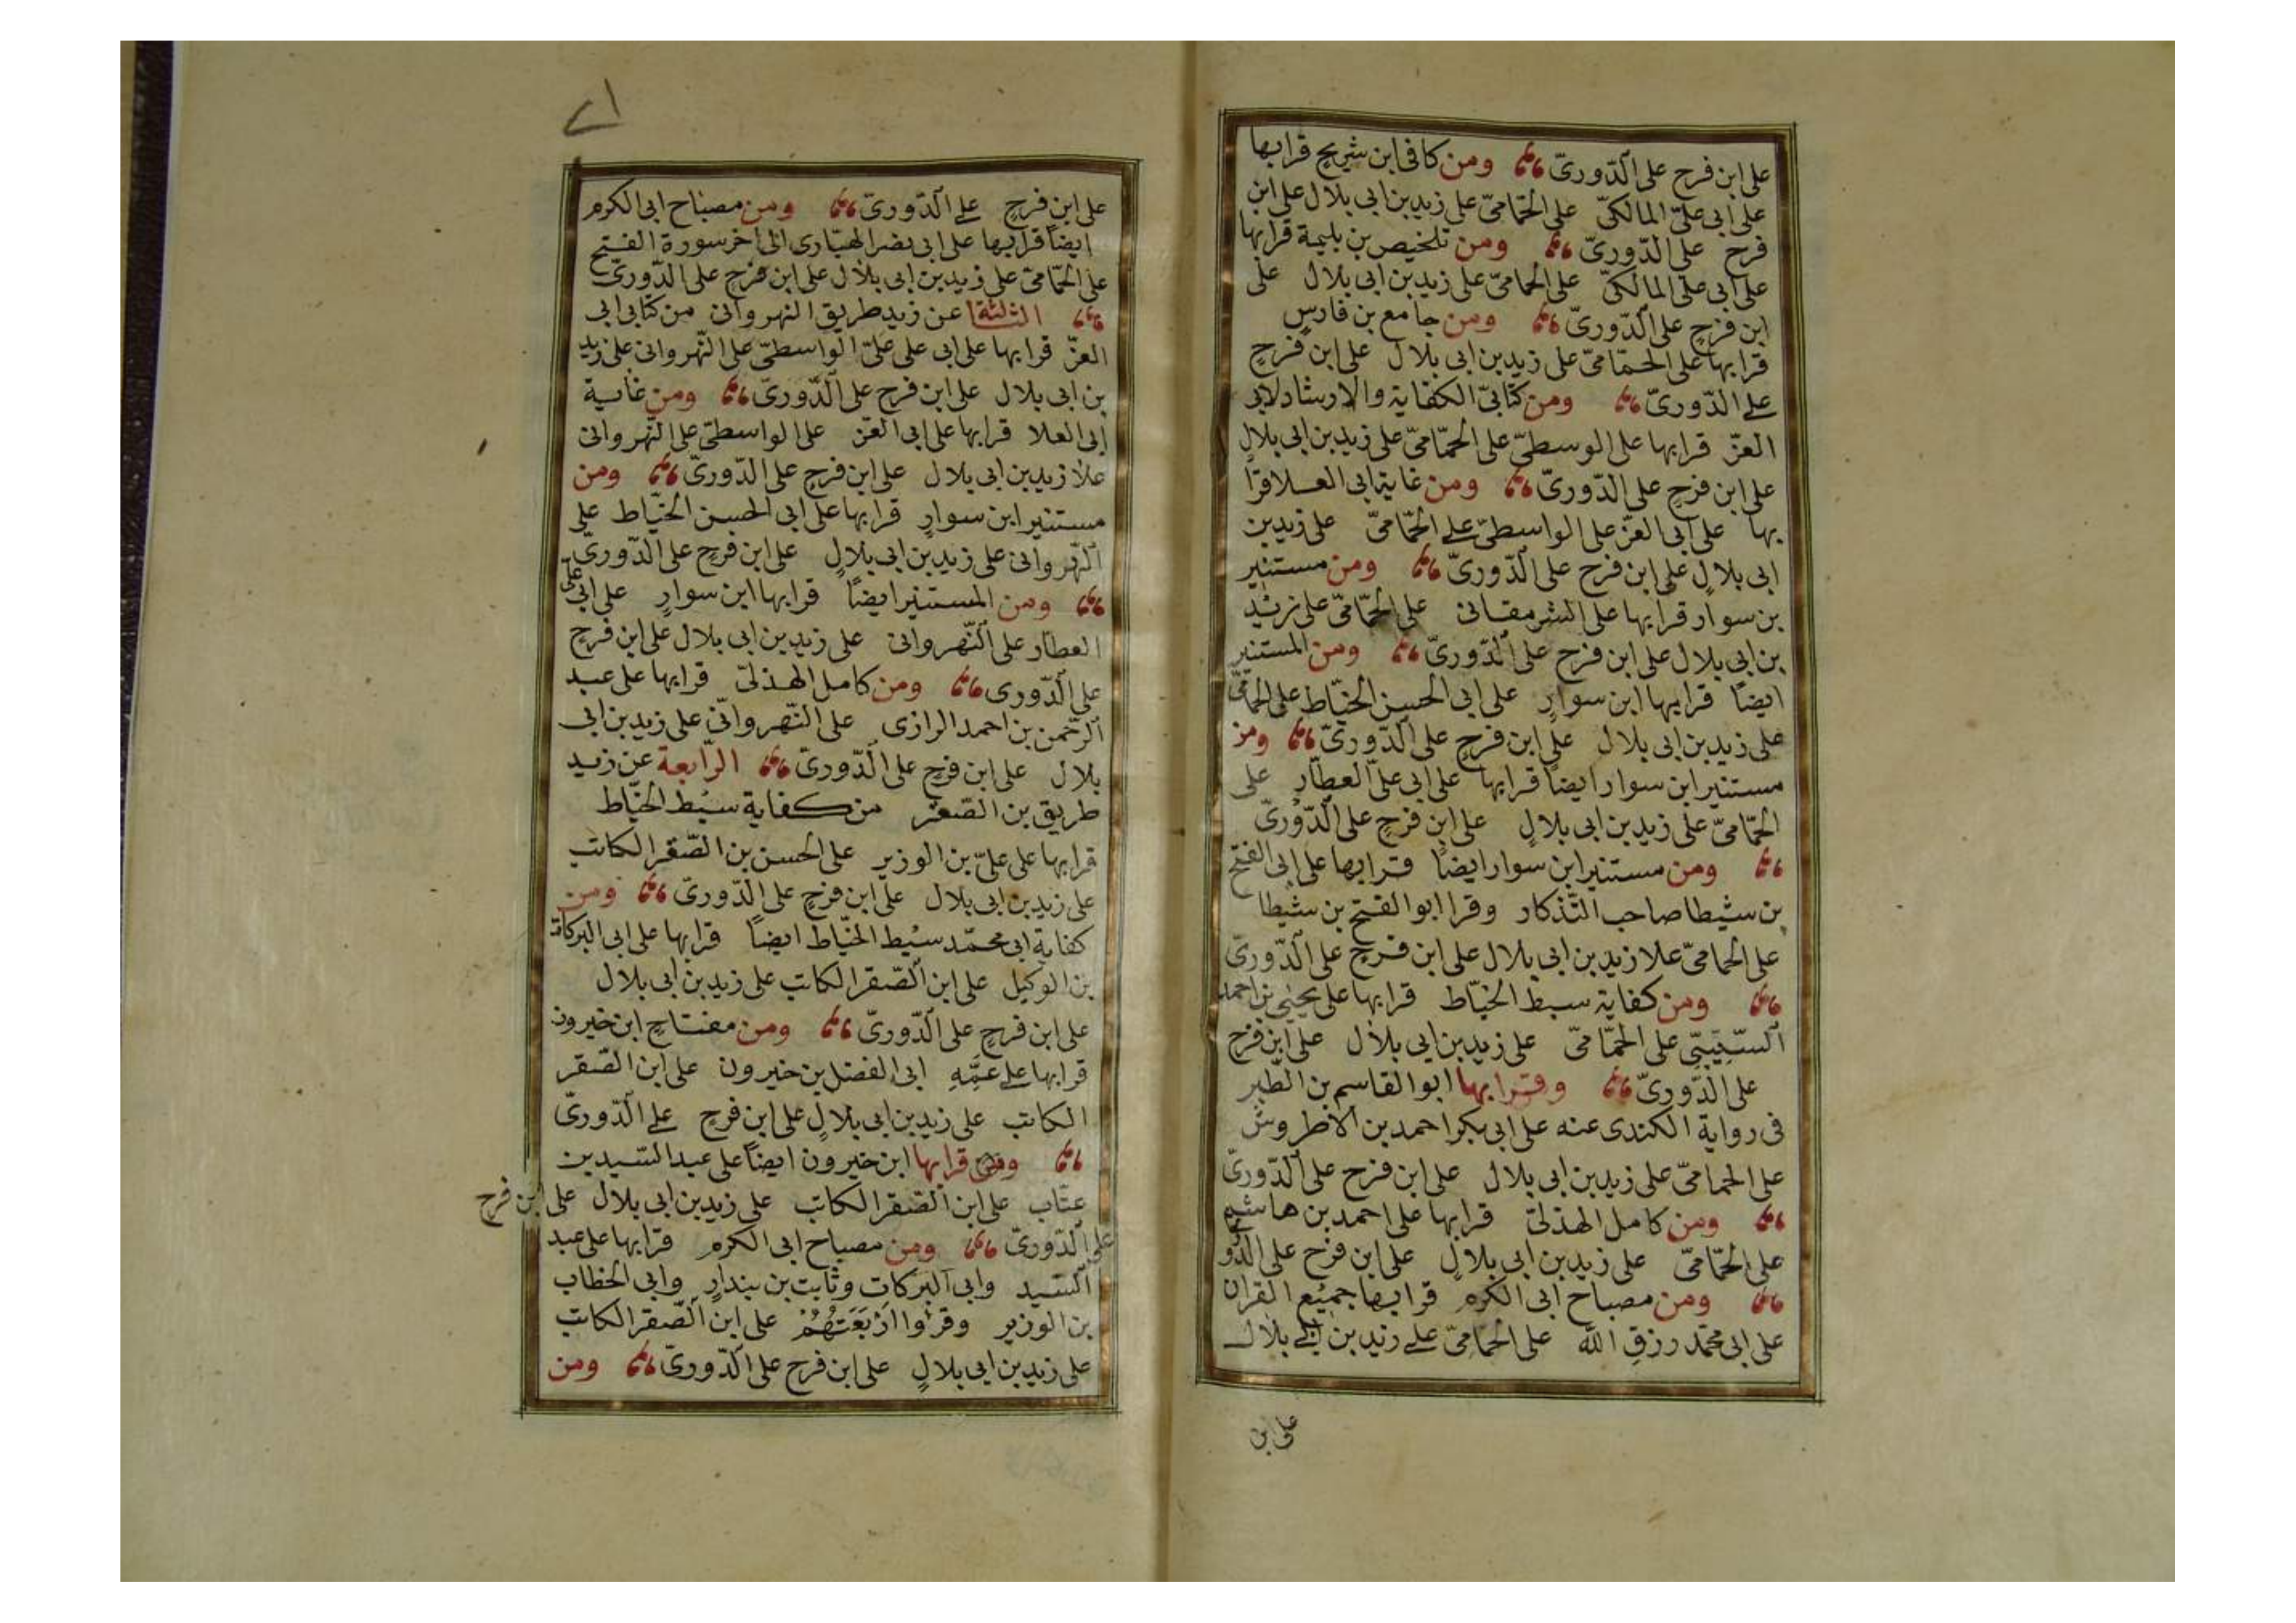 على ابن فرح على الدّورىّ ومن كافى ابن شريح قرا بها
على ابى علىّ المالكىّ على الحمّامىّ على زيد بن ابى بلال على ابن
فرح على الدّورىّ ومن تلخيص بن بليمة قرا بها
على ابى على المالكىّ على الحمامىّ على زيد بن ابى بلال على
ابن فرح على الدّورىّ ومن جامع بن فارس
قرا بها على الحمّامىّ على زيد بن ابى بلال على ابن فرح
على الدّورىّ ومن كتابىّ الكفاية والارشاد لابى
العزّ قرا بها على الوسطىّ على الحمّامىّ على زيد بن ابى بلال
على ابن فرح على الدّورىّ ومن غاية ابى العلا قرا
بها على ابى العز على الواسطىّ على الحمّامىّ على زيد بن
ابى بلال على ابن فرح على الدّورىّ ومن مستنير
بن سوار قرا بها على الشرمقانى على الحمّامىّ على زيد
بن ابى بلال على ابن فرح على الدّورىّ ومن المستنير
ايضًا قرا بها ابن سوار على ابى الحسن الخيّاط على الحمّامىّ
على زيد بن ابى بلال على ابن فرح على الدّورىّ ومن
مستنير ابن سوار ايضًا قرا بها على ابى علىّ العطّار على
الحمّامىّ على زيد بن ابى بلال على ابن فرح على الدّورىّ
ومن مستنير ابن سوار ايضًا قرا بها على ابى الفتح
بن شيطا صاحب التّذكار وقرا ابو الفتح بن شيطا
على الحمامىّ علا زيد بن ابى بلال على ابن فرح على الدّورىّ
ومن كفاية سبط الخيّاط قرا بها على يحيى بن احمد
السّيبىّ على الحمّامىّ على زيد بن ابى بلال على ابن فرح
على الدّورىّ وقرا بها ابو القاسم بن الطّبر
فى رواية الكندى عنه على ابى بكر احمد بن الاطروش
على الحمامىّ على زيد بن ابى بلال على ابن فرح على الدّورىّ
ومن كامل الهذلىّ قرا بها على احمد بن هاشم
على الحمّامىّ على زيد بن ابى بلال على ابن فرح على الدّورى
ومن مصباح ابى الكرم قرا بها جميع القران
على ابى محمّد رزق الله على الحمّامىّ على زيد بن ابى بلال
على ابن
٢١
على ابن فرح على الدّورىّ ومن مصباح ابى الكرم
ايضًا قرا بها على ابى نصر الهبّارى الى اخر سورة الفتح
على الحمّامىّ على زيد بن ابى بلال على ابن فرح على الدّورىّ
الثالثة عن زيد طريق النهروانى من كتابى ابى
العزّ قرا بها على ابى على علىّ الواسطىّ على النّهروانى على زيد
بن ابى بلال على ابن فرح على الدّورىّ ومن غاية
ابى العلا قرا بها على ابى العزّ على الواسطىّ على النّهروانى
علا زيد بن ابى بلال على ابن فرح على الدّورىّ ومن
مستنير ابن سوار قرا بها على ابى الحسن الخيّاط على
النّهروانى على زيد بن ابى بلال على ابن فرح على الدّورىّ
ومن المستنير ايضًا قرا بها ابن سوار على ابى علىّ
العطّار على النّهروانى على زيد بن ابى بلال على ابن فرح
على الدّورى ومن كامل الهذلىّ قرا بها على عبد
الرّحمن بن احمد الرازى على النّهروانّى على زيد بن ابى
بلال على ابن فرح على الدّورىّ الرّابعة عن زيد
طريق بن الصّقر من كفاية سبط الخيّاط
قرا بها على علىّ بن الوزير على الحسن بن الصّقر الكاتب
على زيد بن ابى بلال على ابن فرح على الدّورىّ ومن
كفاية ابى محمّد سبط الخيّاط ايضًا قرا بها على ابى البركات
بن الوكيل على ابن الصّقر الكاتب على زيد بن ابى بلال
على ابن فرح على الدّورىّ ومن مفتاح ابن خيرون
قرا بها على عمّه ابى الفضل بن خيرون على ابن الصّقر
الكاتب على زيد بن ابى بلال على ابن فرح على الدّورىّ
قرا بها ابن خيرون ايضًا على عبد السّيد بن
عتّاب على ابن الصّقر الكاتب على زيد بن ابى بلال على ابن فرح
على الدّورىّ ومن مصباح ابى الكرم قرا بها على عبد
السّيد وابى البركات وثابت بن بندار وابى الخطاب
بن الوزير وقرؤا اربعتهم على ابن الصّقر الكاتب
على زيد بن ابى بلال على ابن فرح على الدّورىّ ومن